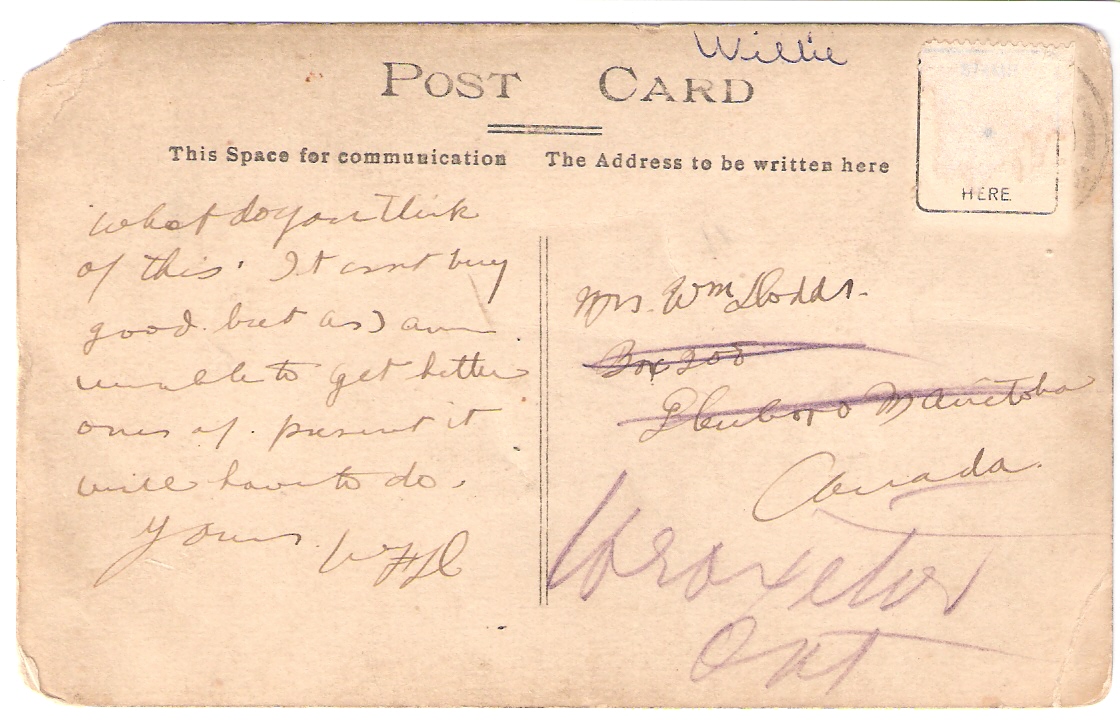 Willie
POST CARD
This Space for communication
The Address to be written here
HERE
what do you think
of this. It isnt very
good but as I am
unable to get better
ones at present it
will have to do.
Yours WHD
Mrs. Wm Dodds.
Box 208
Glenboro Manitoba
Canada.
Wroxeter
Ont